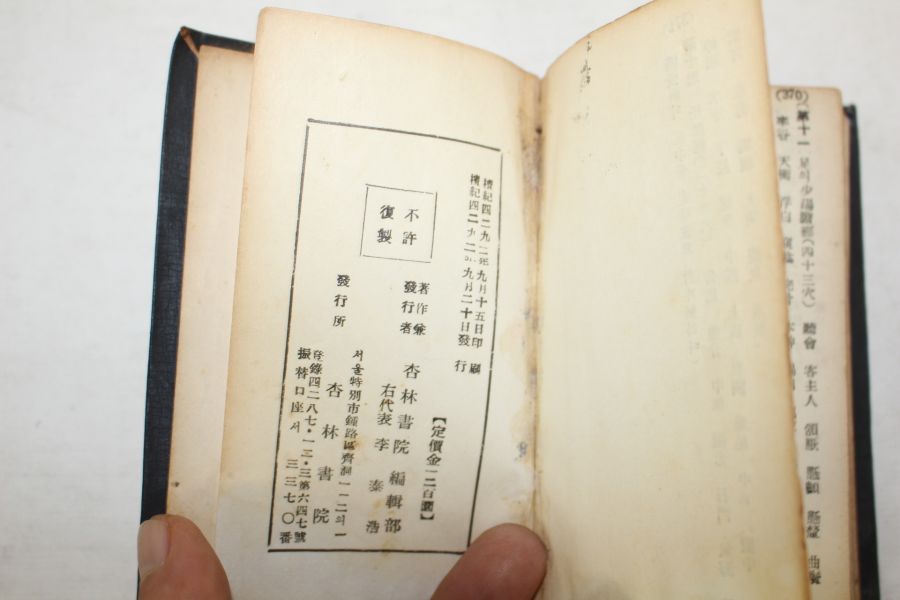 (370)
第十一 足의少陽膽經(四十三穴) 聽會 客主人 頷厭 懸顱 懸釐 曲鬢
率谷 天衝 浮白
檀紀四二九二年九月十五日印刷
檀紀四二九二年九月二十日發行
【定價金一二百圜】
不許
復製
著作兼
發行者
杏林書院 編輯部
右代表 李泰浩
發行所
서울特別市鍾路區齊洞一一二의一
杏林書院
登錄四二八七・一二・三第六四七號
振替口座서 三三七〇番